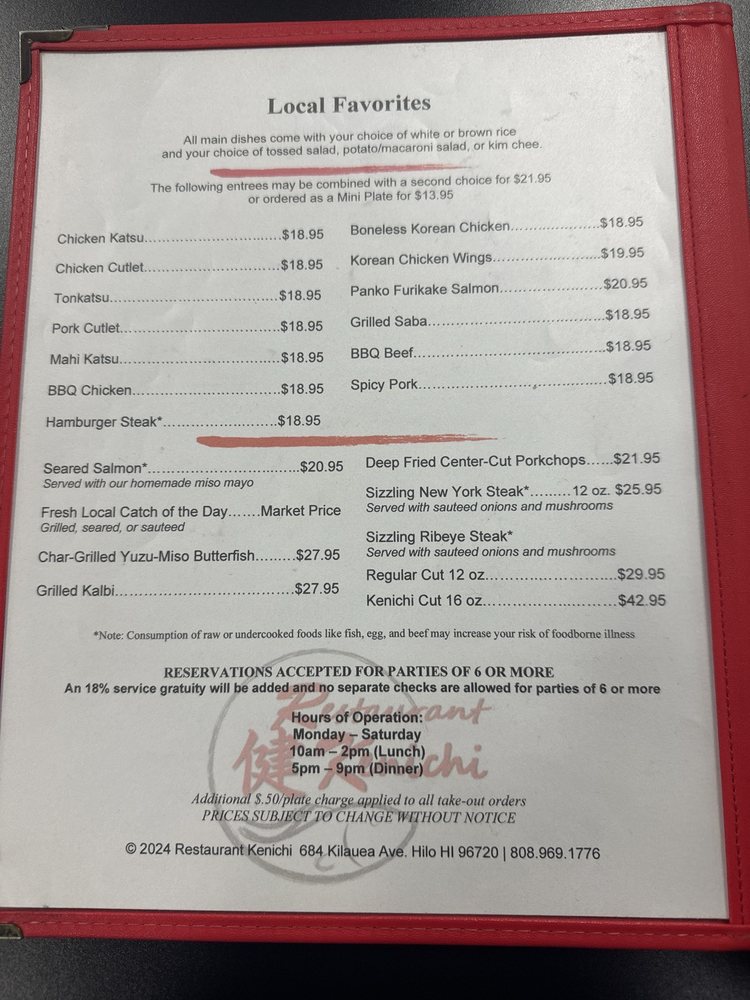 Local Favorites
All main dishes come with your choice of white or brown rice
and your choice of tossed salad, potato/macaroni salad, or kim chee.
The following entrees may be combined with a second choice for $21.95
or ordered as a Mini Plate for $13.95
Chicken Katsu..............................$18.95
Chicken Cutlet..............................$18.95
Tonkatsu.....................................$18.95
Pork Cutlet...................................$18.95
Mahi Katsu...................................$18.95
BBQ Chicken................................$18.95
Hamburger Steak*.........................$18.95
Boneless Korean Chicken....................$18.95
Korean Chicken Wings........................$19.95
Panko Furikake Salmon.......................$20.95
Grilled Saba.......................................$18.95
BBQ Beef..........................................$18.95
Spicy Pork.........................................$18.95
Seared Salmon*.................................$20.95
Served with our homemade miso mayo
Fresh Local Catch of the Day.......Market Price
Grilled, seared, or sauteed
Char-Grilled Yuzu-Miso Butterfish.........$27.95
Grilled Kalbi.......................................$27.95
Deep Fried Center-Cut Porkchops......$21.95
Sizzling New York Steak*.........12 oz. $25.95
Served with sauteed onions and mushrooms
Sizzling Ribeye Steak*
Served with sauteed onions and mushrooms
Regular Cut 12 oz.............................$29.95
Kenichi Cut 16 oz..............................$42.95
*Note: Consumption of raw or undercooked foods like fish, egg, and beef may increase your risk of foodborne illness
RESERVATIONS ACCEPTED FOR PARTIES OF 6 OR MORE
An 18% service gratuity will be added and no separate checks are allowed for parties of 6 or more
Restaurant
健 Kenichi
Hours of Operation:
Monday – Saturday
10am – 2pm (Lunch)
5pm – 9pm (Dinner)
Additional $.50/plate charge applied to all take-out orders
PRICES SUBJECT TO CHANGE WITHOUT NOTICE
© 2024 Restaurant Kenichi 684 Kilauea Ave. Hilo HI 96720 | 808.969.1776